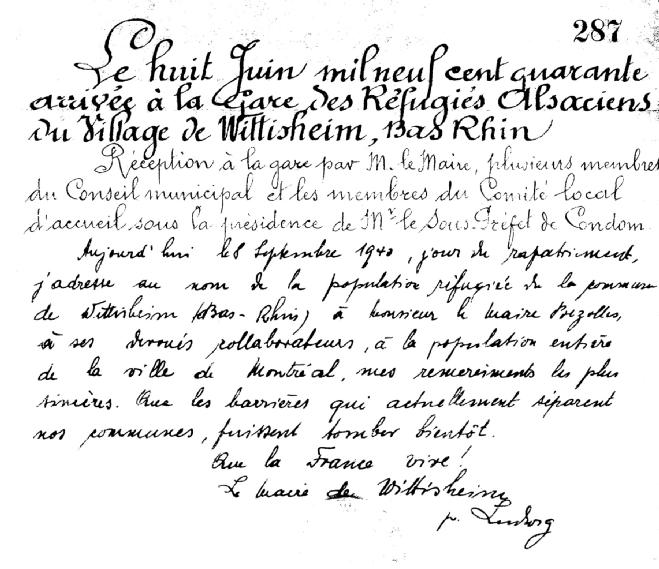 287
Le huit Juin mil neuf cent quarante
arrivée à la Gare des Réfugiés Alsaciens
du Village de Wittisheim, Bas Rhin
Réception à la gare par M. le Maire, plusieurs membres
du Conseil municipal et les membres du Comité local
d'accueil sous la présidence de Mr le Sous-Préfet de Condom.
Aujourd'hui le 8 Septembre 1940, jour du rapatriement,
j'adresse au nom de la population réfugiée de la commune
de Wittisheim (Bas-Rhin) à Monsieur le Maire Bezolles,
à ses dévoués collaborateurs, à la population entière
de la ville de Montréal, mes remerciments les plus
sincères. Que les barrières qui actuellement séparent
nos communes, puissent tomber bientôt.
Que la France vive!
Le Maire de Wittisheim
p. Ludwig